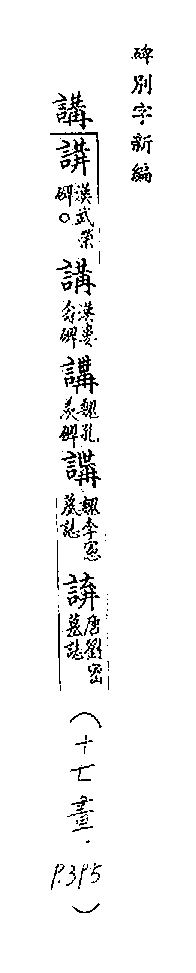 碑別字新編
講
講漢武榮碑。
講漢婁壽碑
講魏孔羨碑
講魏李憲墓誌
講唐劉密墓誌
(十七畫.P.395)